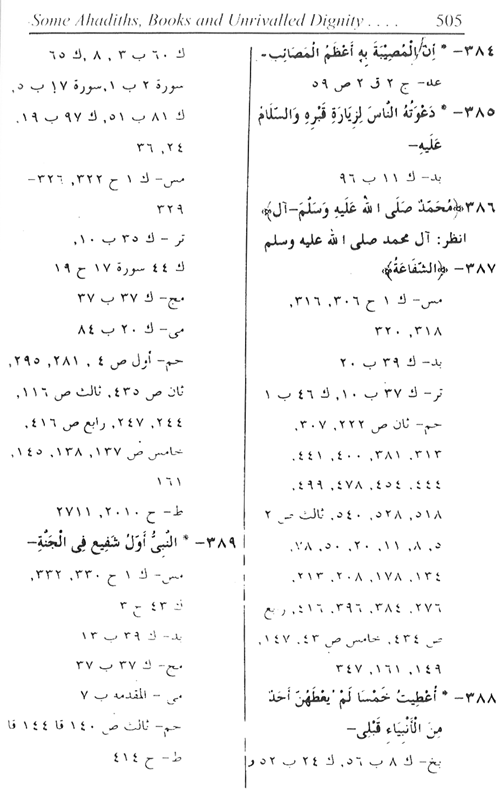 Some Ahadiths, Books and Unrivalled Dignity . . . . 505
٣٨٤- * اِنّ الْمُصِيْبَةَ بِهِ أَعْظَمُ الْمَصَائِب-
عد- ج ٢ ق ٢ ص ٥٩
٣٨٥- * دَعْوَتُهُ النَّاسَ لِزِيَارَةِ قَبْرِهِ وَالسَّلَامُ
عَلَيهِ-
بد- ك ١١ ب ٩٦
٣٨٦- ﴿مُحَمَّدْ صَلَى ا للهُ عَلَيهِ وَسَلَّمَ-آل﴾
انظر: آل محمد صلى ا لله عليه وسلم
٣٨٧- ﴿الشَّفَاعَةُ﴾
مس- ك ١ ح ٣٠٦, ٣١٦,
٣١٨, ٣٢٠
بد- ك ٣٩ ب ٢٠
تر- ك ٣٧ ب ١٠, ك ٤٦ ب ١
حم- ثان ص ٢٢٢, ٣٠٧,
٣١٣, ٣٨١, ٤٠٠, ٤٤١,
٤٤٤, ٤٥٤, ٤٧٨, ٤٩٩,
٥١٨, ٥٢٨, ٥٤٠, ثالث ص ٢
٥, ٨, ١١, ٢٠, ٥٠,
١٣٤, ١٧٨, ٢٠٨, ٢١٣,
٢٧٦, ٣٨٤, ٣٩٦, ٤١٦, ربع
ص ٤٣٤, خامس ص ٤٣, ١٤٧,
١٤٩, ١٦١, ٣٤٧
٣٨٨- * أُعْطِيتُ خَمْسًا لَمْ يُعْطَهُنَّ أَحَدٌ
مِنَ الْأَنْبِيَاءِ قَبْلِى-
بخ- ك ٨ ب ٥٦, ك ٢٤ ب ٥٢ و
ك ٦٠ ب ٣, ٨, ك ٦٥
سورة ٢ ب ١, سورة ١٧ ب ٥,
ك ٨١ ب ٥١, ك ٩٧ ب ١٩,
٢٤, ٣٦
مس- ك ١ ح ٣٢٢, ٣٢٦-
٣٢٩
تر - ك ٣٥ ب ١٠,
ك ٤٤ سورة ١٧ ح ١٩
مج- ك ٣٧ ب ٣٧
مى- ك ٢٠ ب ٨٤
حم- أول ص ٤, ٢٨١, ٢٩٥,
ثان ص ٤٣٥, ثالث ص ١١٦,
٢٤٤, ٢٤٧, رابع ص ٤١٦,
خامس ص ١٣٧, ١٣٨, ١٤٥,
١٦١
ط- ح ٢٠١٠, ٢٧١١
٣٨٩- * النَّبِىُّ أَوَّلُ شَفِيعٍ فِى الْجَنَّةِ-
مس- ك ١ ح ٣٣٠, ٣٣٢,
ك ٤٣ ح ٣
بد- ك ٣٩ ب ١٣
مج- ك ٣٧ ب ٣٧
مى - المقدمه ب ٧
حم- ثالث ص ١٤٠ قا ١٤٤ قا
ط- ح ٤١٤